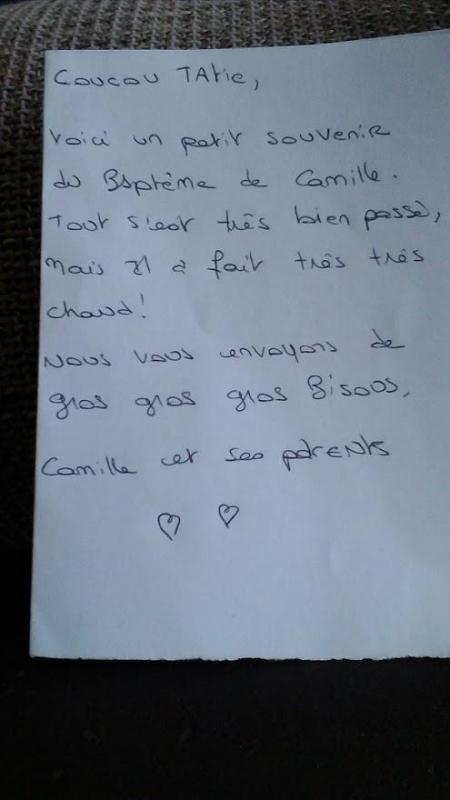 Coucou Tatie,
Voici un petit souvenir
du Baptême de Camille.
Tout s'est très bien passé,
mais il a fait très très
chaud!
Nous vous envoyons de
gros gros gros Bisous,
Camille et ses parents